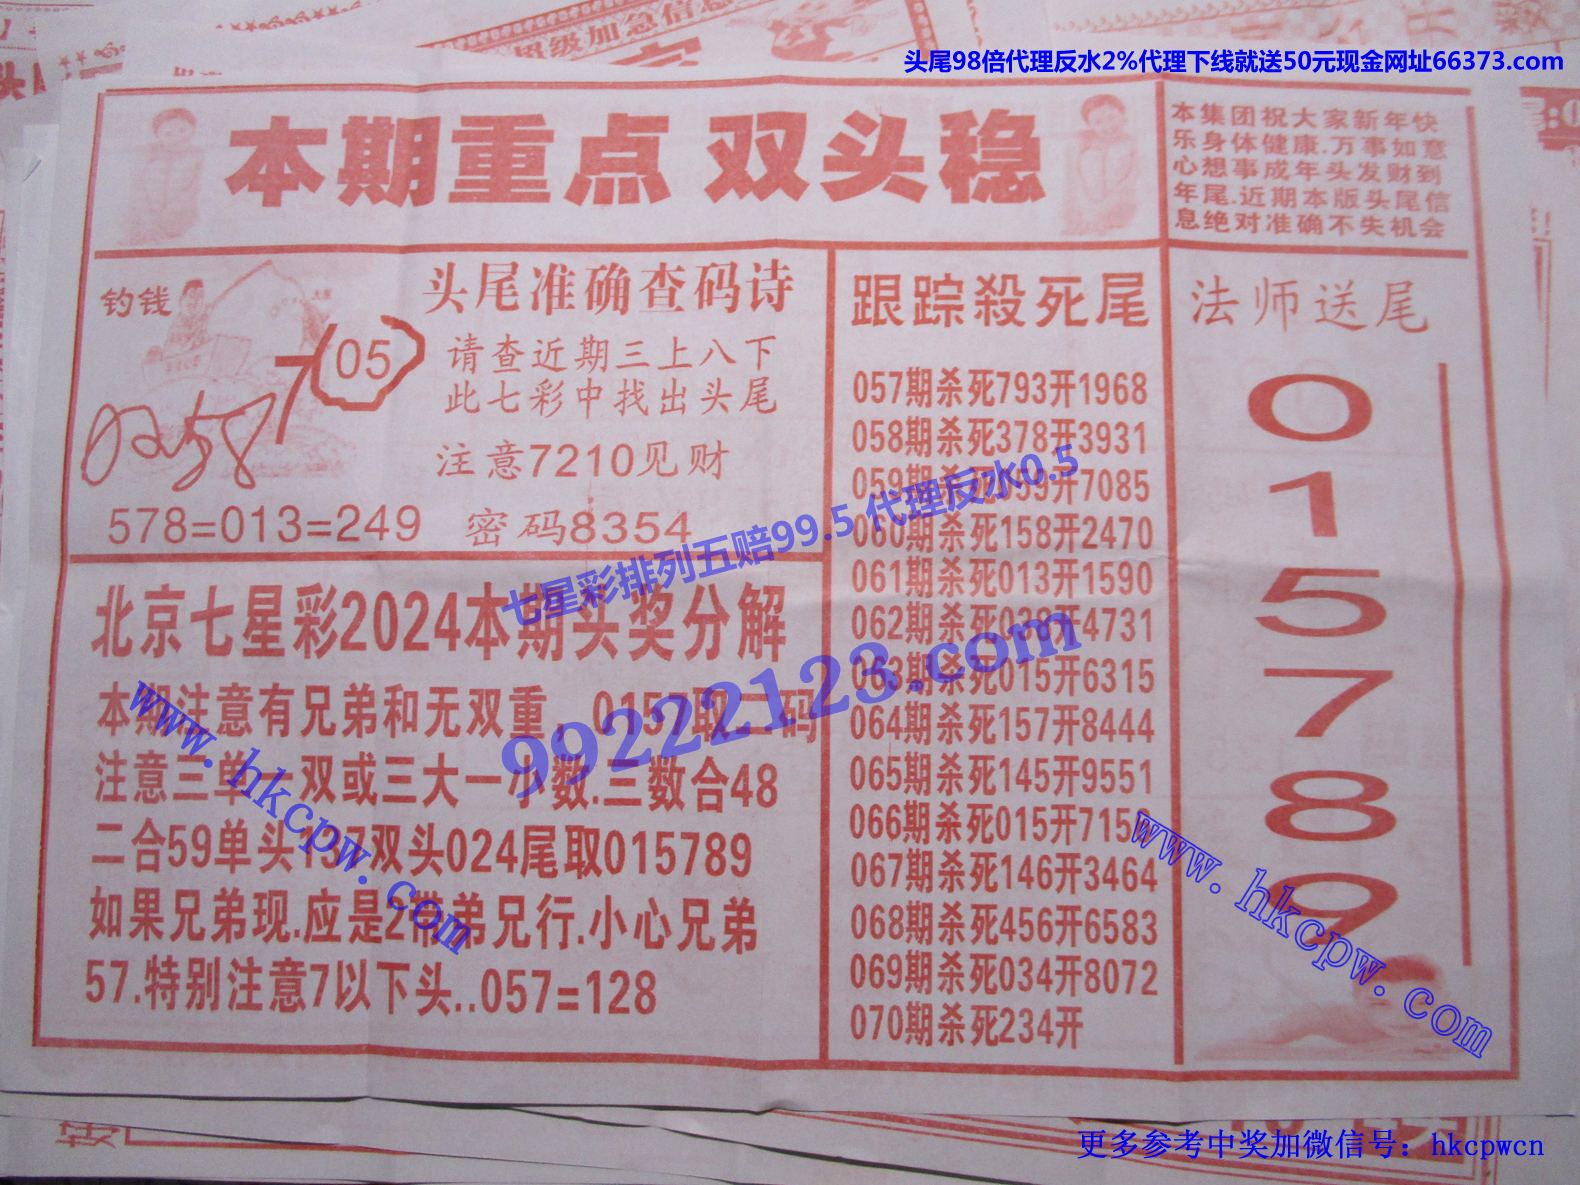 超级加急信息
头尾98倍代理反水2%代理下线就送50元现金网址66373.com
本期重点 双头稳
本集团祝大家新年快
乐身体健康.万事如意
心想事成年头发财到
年尾.近期本版头尾信
息绝对准确不失机会
钓钱
头尾准确查码诗
05
请查近期三上八下
此七彩中找出头尾
注意7210见财
578=013=249 密码8354
跟踪殺死尾
057期杀死793开1968
058期杀死378开3931
059期杀死059开7085
060期杀死158开2470
061期杀死013开1590
062期杀死038开4731
063期杀死015开6315
064期杀死157开8444
065期杀死145开9551
066期杀死015开715
067期杀死146开3464
068期杀死456开6583
069期杀死034开8072
070期杀死234开
法师送尾
0
1
5
7
8
9
北京七星彩2024本期头奖分解
本期注意有兄弟和无双重，0157取二码
注意三单一双或三大一小数.三数合48
二合59单头137双头024尾取015789
如果兄弟现.应是2带弟兄行.小心兄弟
57.特别注意7以下头..057=128
七星彩排列五赔99.5 代理反水0.5
99222123.com
www.hkcpw.com
www.hkcpw.com
更多参考中奖加微信号：hkcpwcn